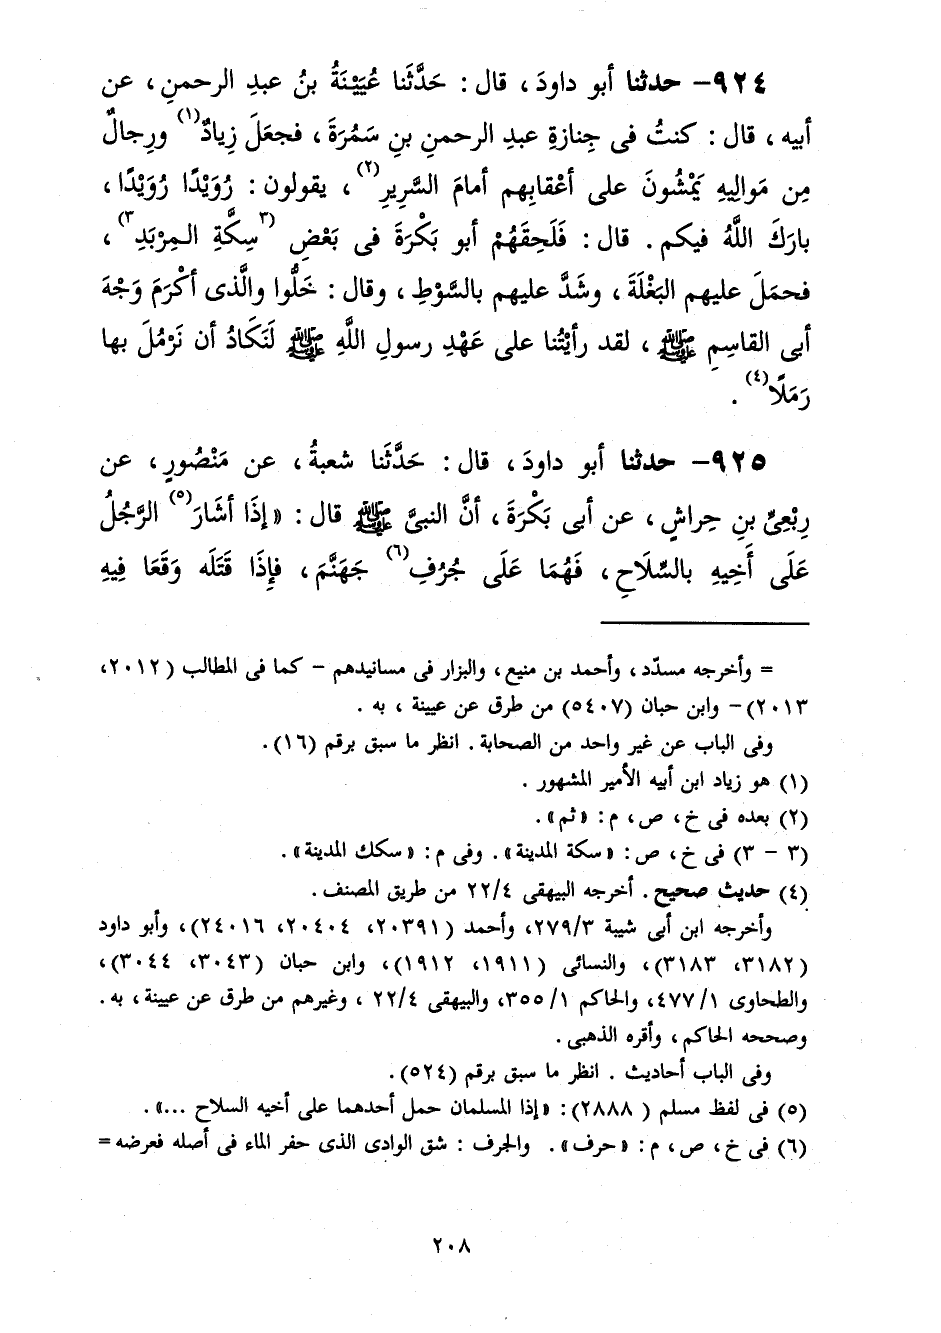 ٩٢٤- حدثنا أبو داودَ ، قال : حَدَّثَنا عُيَيْنَةُ بنُ عبدِ الرحمنِ ، عن
أبيه ، قال : كنتُ فى جِنازةِ عبدِ الرحمنِ بنِ سَمُرَةَ ، فجعَلَ زِيادٌ(١) ورِجالٌ
مِن مَوالِيهِ يَمْشُونَ على أعْقابِهم أمامَ السَّرِيرِ(٢) ، يقولون : رُوَيْدًا رُوَيْدًا ،
بارَكَ اللَّهُ فيكم . قال : فَلَحِقَهُمْ أبو بَكْرَةَ فى بَعْضِ (٣ سِكَّةِ المِرْبَدِ ٣) ،
فحمَلَ عليهم البَغْلَةَ ، وشَدَّ عليهم بالسَّوْطِ ، وقال : خَلُّوا والَّذى أكْرَمَ وَجْهَ
أبى القاسِمِ ﷺ ، لقد رأيْتُنا على عَهْدِ رسولِ اللَّهِ ﷺ لَنَكَادُ أن نَرْمُلَ بها
رَمَلًا(٤) .
٩٢٥- حدثنا أبو داودَ ، قال : حَدَّثَنا شعبةُ ، عن مَنْصُورٍ ، عن
رِبْعِىِّ بنِ حِراشٍ ، عن أبى بَكْرَةَ ، أنَّ النبىَّ ﷺ قال : « إذَا أشَارَ(٥) الرَّجُلُ
عَلَى أَخِيهِ بالسِّلَاحِ ، فَهُمَا عَلَى جُرُفِ(٦) جَهَنَّمَ ، فإِذَا قَتَلَه وَقَعَا فِيهِ
= وأخرجه مسدّد ، وأحمد بن منيع ، والبزار فى مسانيدهم - كما فى المطالب (٢٠١٢،
٢٠١٣)- وابن حبان (٥٤٠٧) من طرق عن عيينة ، به .
وفى الباب عن غير واحد من الصحابة . انظر ما سبق برقم (١٦).
(١) هو زياد ابن أبيه الأمير المشهور .
(٢) بعده فى خ ، ص ، م : « ثم ».
(٣ - ٣) فى خ ، ص : « سكة المدينة » . وفى م : « سكك المدينة » .
(٤) حديث صحيح . أخرجه البيهقى ٢٢/٤ من طريق المصنف .
وأخرجه ابن أبى شيبة ٢٧٩/٣، وأحمد (٢٠٣٩١، ٢٠٤٠٤، ٢٤٠١٦)، وأبو داود
(٣١٨٢، ٣١٨٣)، والنسائى (١٩١١، ١٩١٢)، وابن حبان (٣٠٤٣، ٣٠٤٤)،
والطحاوى ٤٧٧/١، والحاكم ٣٥٥/١، والبيهقى ٢٢/٤ ، وغيرهم من طرق عن عيينة ، به .
وصححه الحاكم ، وأقره الذهبى .
وفى الباب أحاديث . انظر ما سبق برقم (٥٢٤).
(٥) فى لفظ مسلم ( ٢٨٨٨): «إذا المسلمان حمل أحدهما على أخيه السلاح ...» .
(٦) فى خ ، ص ، م : « حرف » . والجرف : شق الوادى الذى حفر الماء فى أصله فعرضه =
٢٠٨